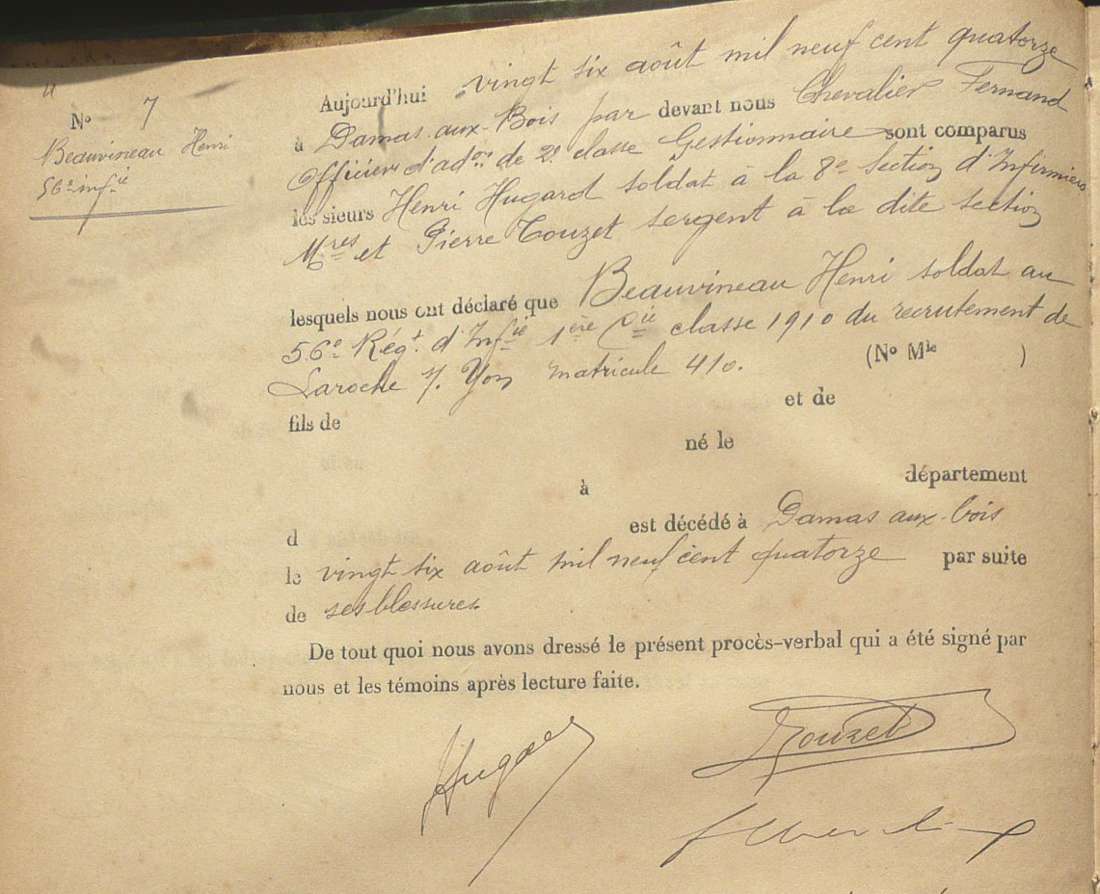 Nº 7
Beauvineau Henri
56e infie
Aujourd'hui vingt six août mil neuf cent quatorze
à Damas-aux-Bois par devant nous Chevalier Fernand
Officier d'adon de 2e classe Gestionnaire sont comparus
les sieurs Henri Hugard soldat à la 8e Section d'Infirmiers
Mres et Pierre Touzet sergent à la dite section
lesquels nous ont déclaré que Beauvineau Henri soldat au
56e Régt. d'Infie 1ère Cie classe 1910 du recrutement de
Laroche s. Yon matricule 410. (Nº Mle )
fils de et de
né le
à département
d est décédé à Damas aux-bois
le vingt six août mil neuf cent quatorze par suite
de ses blessures
De tout quoi nous avons dressé le présent procès-verbal qui a été signé par
nous et les témoins après lecture faite.
Touzet